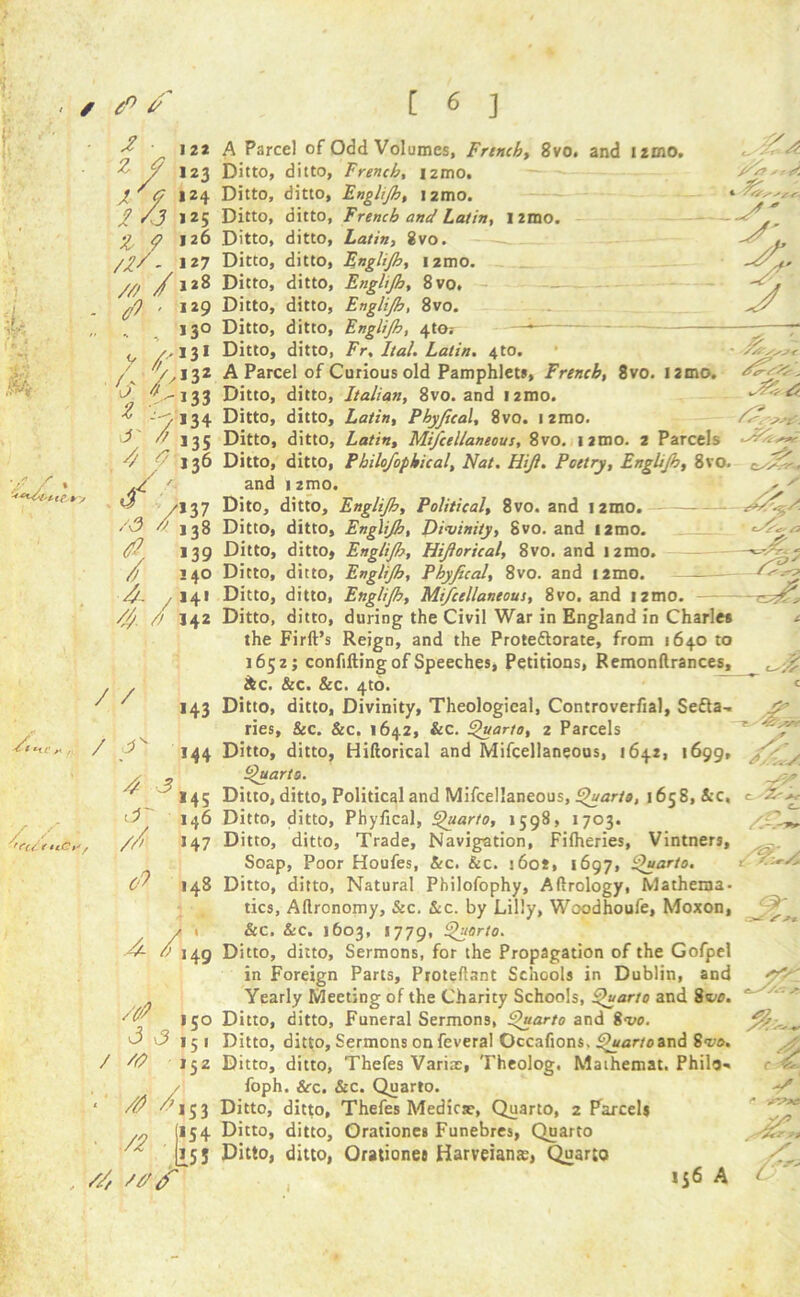 [ 6 ]
122 A Parcel of Odd Volumes, French, 8vo. and 12mo.
123 Ditto, ditto, French, 12mo.
124 Ditto, ditto, Engliſh, 12mo.
125 Ditto, ditto, French and Latin, 12mo.
126 Ditto, ditto, Latin, 8vo.
127 Ditto, ditto, Engliſh, 12mo.
128 Ditto, ditto, Engliſh, 8vo.
129 Ditto, ditto, Engliſh, 8vo.
130 Ditto, ditto, Engliſh, 4to.
131 Ditto, ditto, Fr. Ital. Latin. 4to.
132 A Parcel of Curious old Pamphlets, French, 8vo. 12mo.
133 Ditto, ditto, Italian, 8vo. and 12mo.
134 Ditto, ditto, Latin, Phyſical, 8vo. 12mo.
135 Ditto, ditto, Latin, Miſcellaneous, 8vo. 12mo. 2 Parcels
136 Ditto, ditto, Philoſophical, Nat. Hiſt. Poetry, Engliſh, 8vo.
and 12mo.
137 Dito, ditto, Engliſh, Political, 8vo. and 12mo.
138 Ditto, ditto, Engliſh, Divinity, 8vo. and 12mo.
139 Ditto, ditto, Engliſh, Hiſtorical, 8vo. and 12mo.
140 Ditto, ditto, Engliſh, Phyſical, 8vo. and 12mo.
141 Ditto, ditto, Engliſh, Miſcellaneous, 8vo. and 12mo.
142 Ditto, ditto, during the Civil War in England in Charles
the Firſt's Reign, and the Protectorate, from 1640 to
1652; conſiſting of Speeches, Petitions, Remonſtrances,
&c. &c. &c. 4to.
143 Ditto, ditto, Divinity, Theological, Controverſial, Secta-
ries, &c. &c. 1642, &c. Quarto, 2 Parcels
144 Ditto, ditto, Hiſtorical and Miſcellaneous, 1642, 1699,
Quarto.
145 Ditto, ditto, Political and Miſcellaneous, Quarto, 1658, &c.
146 Ditto, ditto, Phyſical, Quarto, 1598, 1703.
147 Ditto, ditto, Trade, Navigation, Fiſheries, Vintners,
Soap, Poor Houſes, &c. &c. 1602, 1697, Quarto.
148 Ditto, ditto, Natural Philoſophy, Aſtrology, Mathema-
tics, Aſtronomy, &c. &c. by Lilly, Woodhouſe, Moxon,
&c. &c. 1603, 1779, Quarto.
149 Ditto, ditto, Sermons, for the Propagation of the Goſpel
in Foreign Parts, Proteſtant Schools in Dublin, and
Yearly Meeting of the Charity Schools, Quarto and 8vo.
150 Ditto, ditto, Funeral Sermons, Quarto and 8vo.
151 Ditto, ditto, Sermons on ſeveral Occaſions, Quarto and 8vo.
152 Ditto, ditto, Theſes Variæ, Theolog. Mathemat. Philo-
ſoph. &c. &c. Quarto.
153 Ditto, ditto, Theſes Medicæ, Quarto, 2 Parcels
154 Ditto, ditto, Orationes Funebres, Quarto
155 Ditto, ditto, Orationes Harveianæ, Quarto
156 A